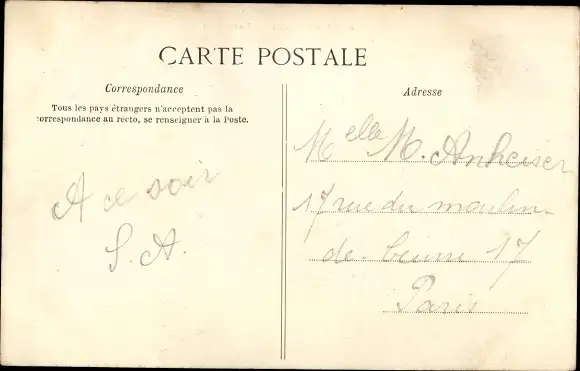 CARTE POSTALE
Correspondance
Tous les pays étrangers n'acceptent pas la
correspondance au recto, se renseigner à la Poste.
A ce soir
S. A.
Adresse
Melle M. Anheiser
17 rue du moulin-
de 17
Paris